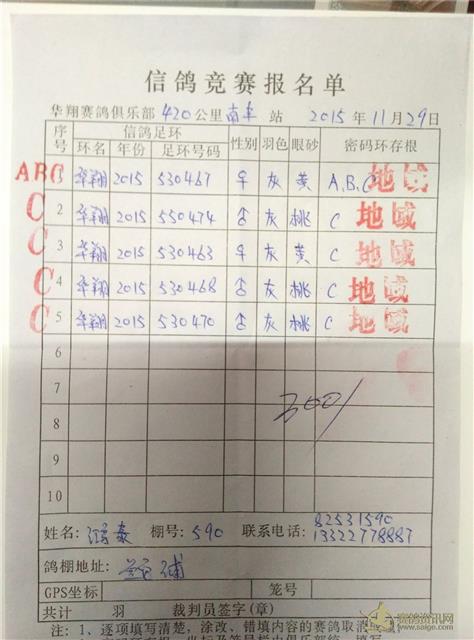 信鸽竞赛报名单
华翔赛鸽俱乐部 420公里 南丰 站 2015年11月29日
序号 信鸽足环 性别 羽色 眼砂 密码环存根
环名 年份 足环号码
ABC 1 华翔 2015 530467 ♀ 灰 黄 A,B,C 地域
C 2 华翔 2015 550474 ♂ 灰 桃 C 地域
C 3 华翔 2015 530463 ♀ 灰 黄 C 地域
C 4 华翔 2015 530468 ♂ 灰 桃 C 地域
C 5 华翔 2015 530470 ♂ 灰 桃 C 地域
6
7
300/
8
9
10
姓名: 鸿泰 棚号: 590 联系电话: 82531590
13322778887
鸽棚地址:
GPS坐标 笼号
共计 羽 裁判员签字(章)
注: 1、逐项填写清楚, 涂改、错填内容的赛鸽取消
赛鸽资讯网
www.saige.com